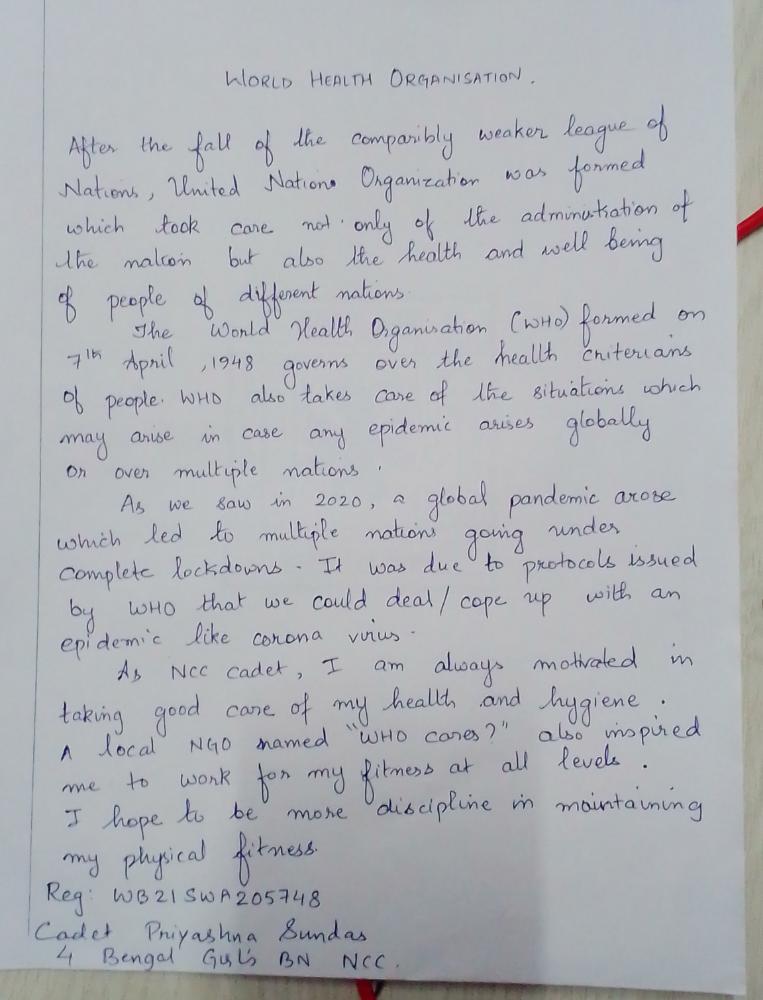 WORLD HEALTH ORGANISATION.
After the fall of the comparibly weaker league of
Nations, United Nations Organization was formed
which took care not only of the administration of
the nation but also the health and well being
of people of different nations.
The World Health Organisation (WHO) formed on
7th April, 1948 governs over the health criterians
of people. WHO also takes care of the situations which
may arise in case any epidemic arises globally
or over multiple nations.
As we saw in 2020, a global pandemic arose
which led to multiple nations going under
complete lockdowns. It was due to protocols issued
by WHO that we could deal/cope up with an
epidemic like corona virus.
As NCC cadet, I am always motivated in
taking good care of my health and hygiene.
A local NGO named "WHO cares?" also inspired
me to work for my fitness at all levels.
I hope to be more discipline in maintaining
my physical fitness.
Reg: WB21SWA205748
Cadet Priyashna Sundas
4 Bengal Girl's BN NCC.